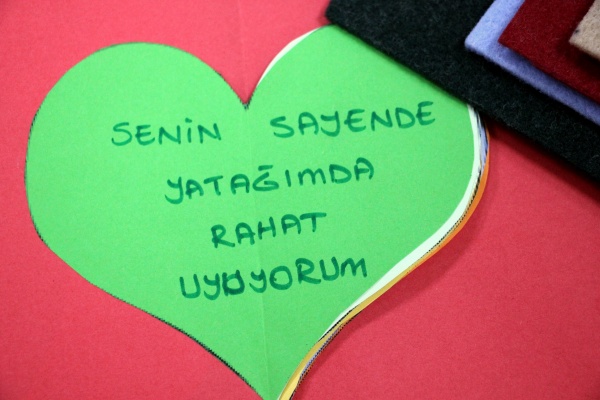 SENİN SAYENDE
YATAĞIMDA
RAHAT
UYUYORUM